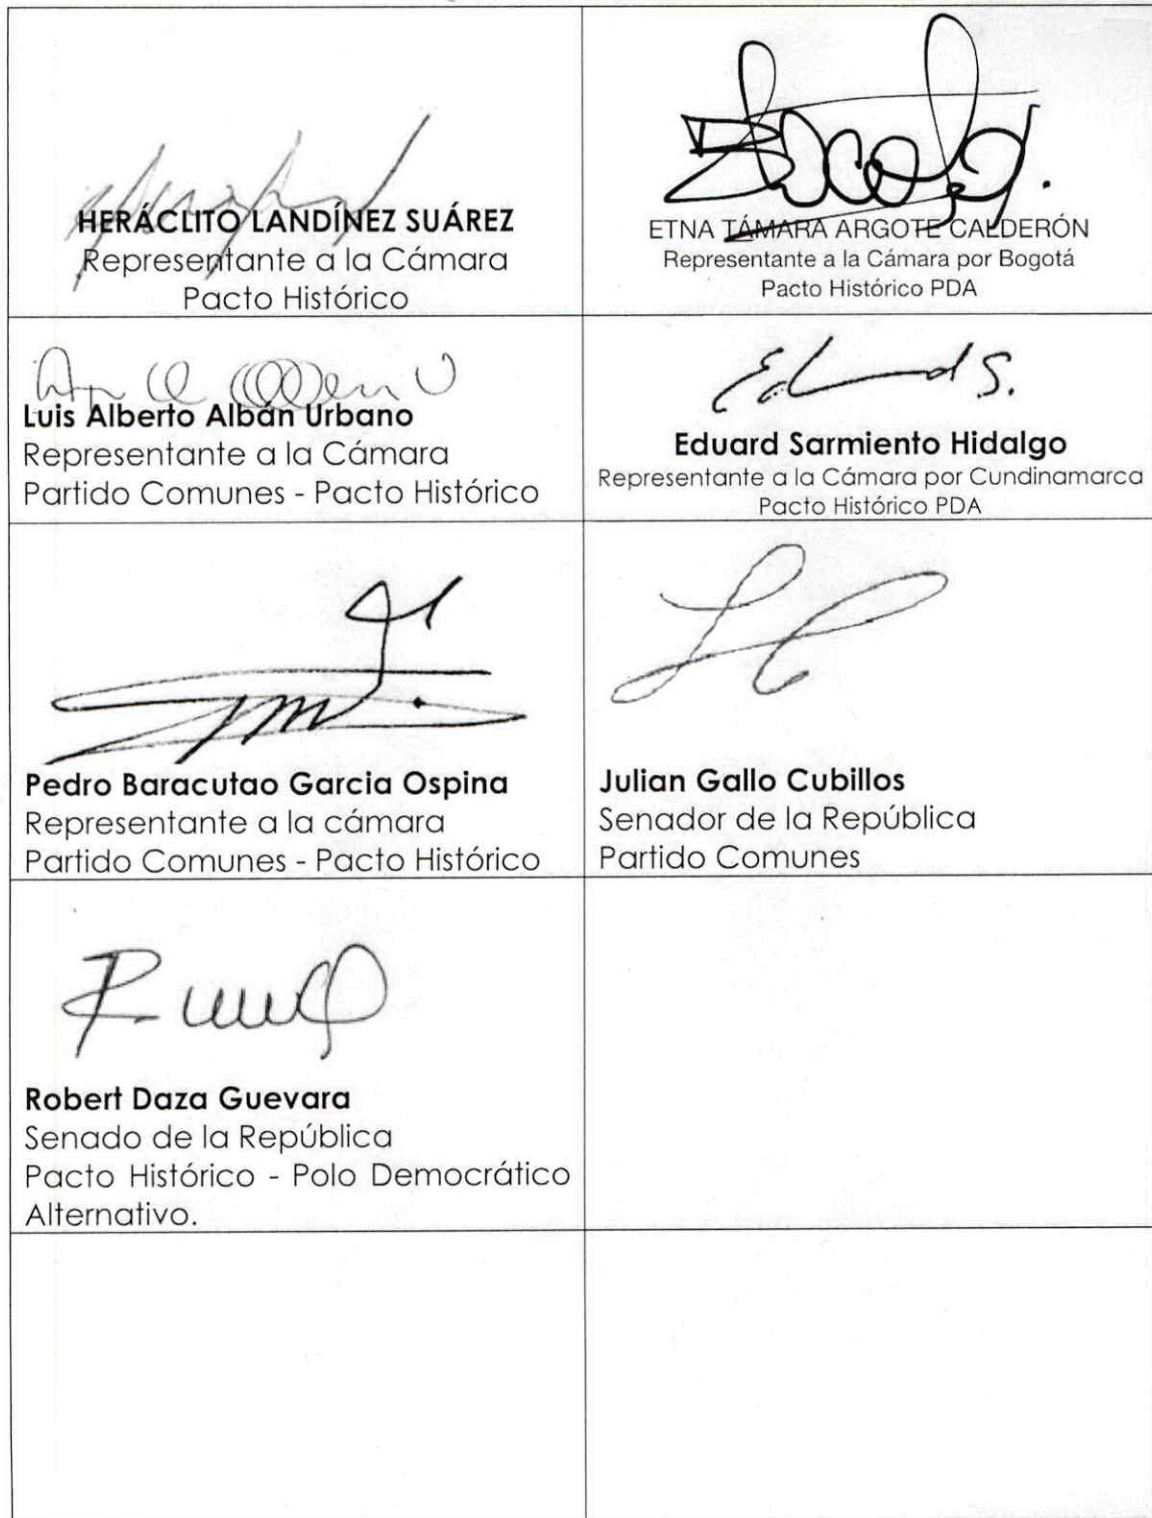 HERÁCLITO LANDÍNEZ SUÁREZ
Representante a la Cámara
Pacto Histórico
ETNA TÁMARA ARGOTE CALDERÓN
Representante a la Cámara por Bogotá
Pacto Histórico PDA
Luis Alberto Albán Urbano
Representante a la Cámara
Partido Comunes - Pacto Histórico
Eduard S.
Eduard Sarmiento Hidalgo
Representante a la Cámara por Cundinamarca
Pacto Histórico PDA
Pedro Baracutao Garcia Ospina
Representante a la cámara
Partido Comunes - Pacto Histórico
Julian Gallo Cubillos
Senador de la República
Partido Comunes
Robert Daza Guevara
Senado de la República
Pacto Histórico - Polo Democrático
Alternativo.